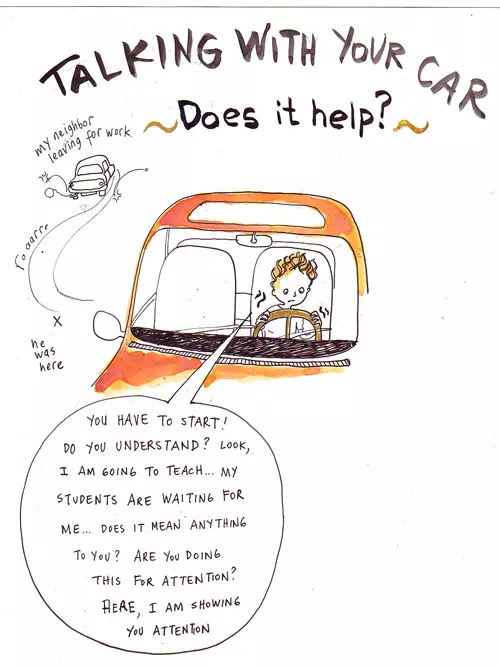 TALKING WITH YOUR CAR
~Does it help?~
my neighbor
leaving for work.
roaarrr
X
he
was
here
YOU HAVE TO START!
DO YOU UNDERSTAND? LOOK,
I AM GOING TO TEACH... MY
STUDENTS ARE WAITING FOR
ME... DOES IT MEAN ANYTHING
TO YOU? ARE YOU DOING
THIS FOR ATTENTION?
HERE, I AM SHOWING
YOU ATTENTION